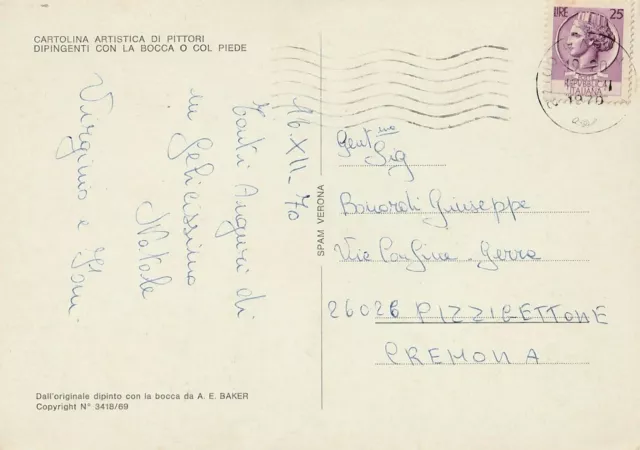 CARTOLINA ARTISTICA DI PITTORI
DIPINGENTI CON LA BOCCA O COL PIEDE
16.XII-70
Tanti Auguri di
un felicissimo
Natale
Virginio e Fam.
Dall'originale dipinto con la bocca da A. E. BAKER
Copyright N° 3418/69
SPAM VERONA
LIRE 25
ITALIANA
1970
Gent.mo
Sig
Giuseppe
Via Gerra
26026 PIZZIGETTONE
CREMONA